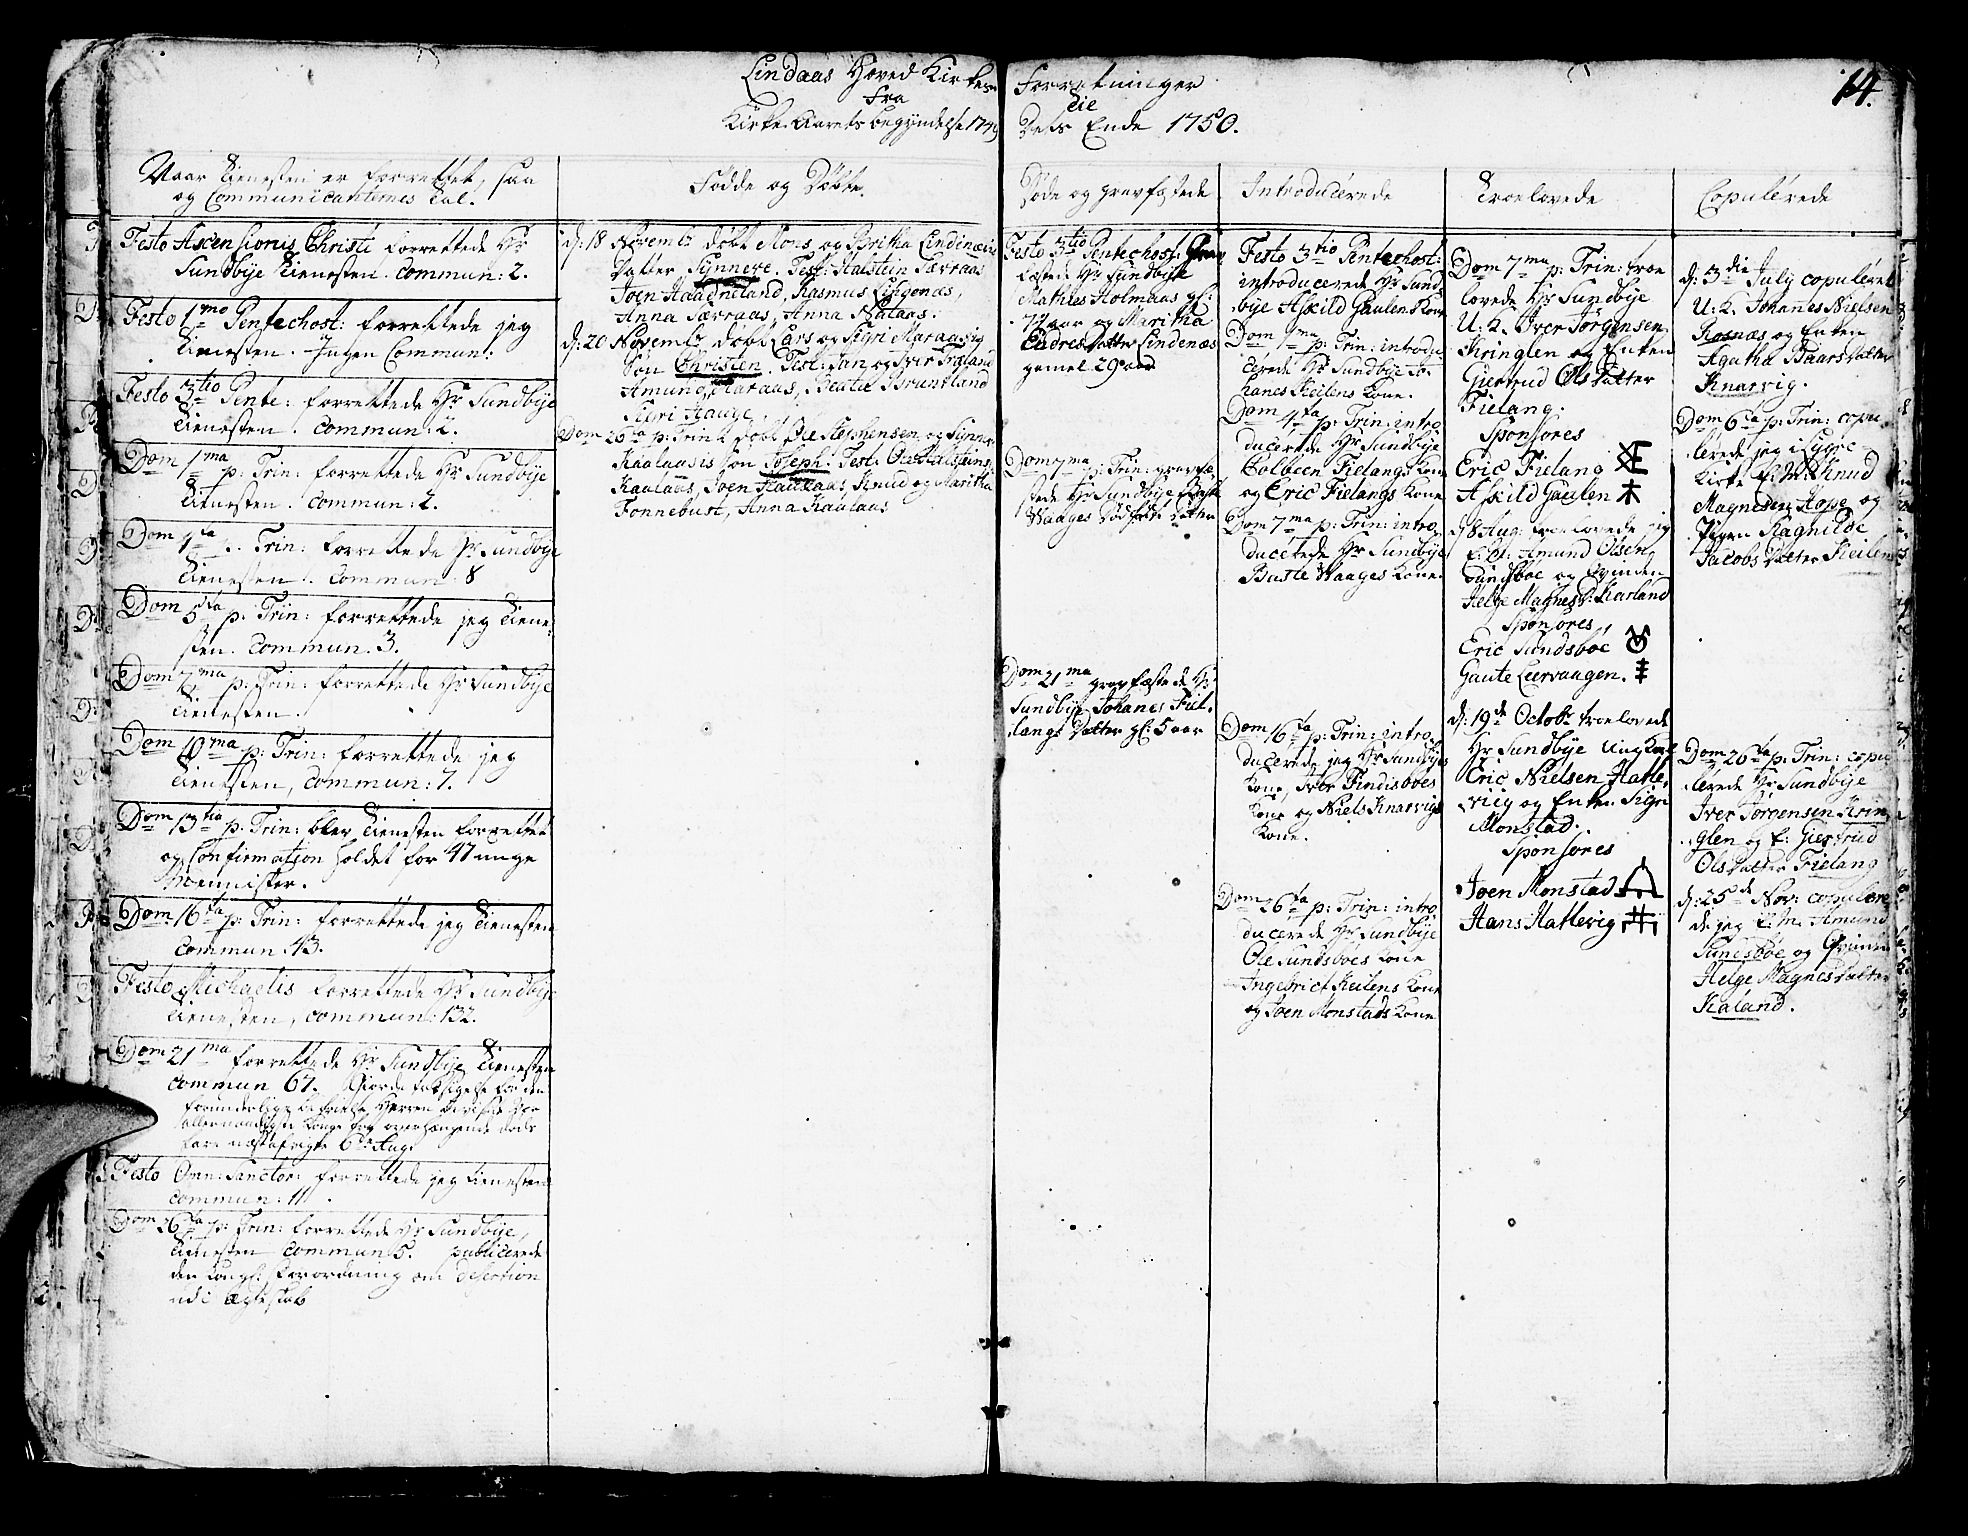 Lindaas Hoved Kirkes Forretninger
Fra
Kirke Aarets begyndelse 1749 til Dets Ende 1750.
14.
Naar Tienesten er forrettet, saa
og Communicanternes Tal.
Festo Ascensionis Christi forrettede Hr
Sundbye Tienesten. Commun: 2.
Festo 1mo Pentechost: forrettede jeg
Tienesten. Ingen Commun:
Festo 3tio Pente: forrettede Hr Sundbye
Tienesten. Commun: 2.
Dom 1ma p: Trin: forrettede Hr Sundbye
Tienesten. Commun: 2.
Dom 4ta p. Trin: forrettede Hr Sundbye
Tienesten. Commun: 8
Dom 5ta p. Trin: forrettede jeg Tiene-
sten. Commun. 3.
Dom 7ma p: Trin: forrettede Hr Sundbye
Tienesten.
Dom 10ma p: Trin: forrettede jeg
Tienesten, Commun: 7.
Dom 13tia p. Trin: blev Tienesten forrettet
og Confirmation holdet for 47 unge
Mennisker.
Dom: 16ta p: Trin: forrettede jeg Tienesten
Commun 43.
Festo Michaelis forrettede Hr Sundbye
Tienesten, Commun: 132.
Dom 21ma forrettede Hr Sundbye Tienesten
Commun 67. Giorde Taksigelse for den
forunderlige befrielse Herren beviiste vor
allernaadigste Konge fra overhængende døds
fare næstafvigte 6te Aug:
Festo Omn: Sanctor: forrettede jeg Tienesten
Commun: 11.
Dom 26ta p: Trin: forrettede Hr Sundbye,
Tienesten Commun 5. publicerede
den Kongl: Forordning om Desertion
udi Ægteskab
Fødde og Døbte.
d: 18 Novembr døbt Mons og Britha Lindenæsis
Datter Synneve. Test: Halstein Særraas
Joen Haadneland, Rasmus Lygonæs,
Anna Særraas, Anna
d: 20 Novembr døbt Lars og Sigri Maraasis
Søn Christen. Test: Jan og Iver Træland
Amund Maraas, Beate Bruntland
Sigri Hauge.
Dom 26ta p: Trin: døbt Ole Stephensen og Synneve
Kaalaasis Søn Joseph. Test: Ole Halsteins:
Kaalaas, Joen Kaalaas, Knud og Maritha
Fonnebust, Anna Kaalaas
Døde og gravfæstede
Festo 3tio Pentechost: Grav
fæstede Hr Sundbye
Mathies Holmaas gl:
aar og Maritha
Endres Datter Lindenæs
gamel 29 aar
Dom 7ma p: Trin: gravfæ-
stede Hr Sundbye Baste
Waages Dødfødte Datter
Dom 21ma gravfæstede Hr
Sundbye Johanes Fie-
langs Datter gl: 5 aar
Introducerede
Festo 3tio Pentechost:
introducerede Hr Sund-
bye Askild Gaulens Kone
Dom 1ma p: Trin: introdu-
cerede Hr Sundbye Jo-
hanes Keilens Kone.
Dom 4ta p: Trin: intro-
ducerede Hr Sundbye
Colbeen Fielangs Kone
og Eric Fielangs Kone
Dom 7ma p: Trin: intro-
ducerede Hr Sundbye
Baste Waages Kone.
Dom 16ta p: Trin: intro-
ducerede jeg Hr Sundbyes
Kone, Iver Findisbøes
Kone og Niels Knarvigs
Kone.
Dom 26ta p: Trin: intro-
ducerede Hr Sundbye
Ole Sundsbøes Kone
Ingebrict Keilens Kone
og Joen Monstads Kone
Troelovede
Dom 7ma p: Trin: troe-
lovede Hr Sundbye
U: K. Iver Jørgensen
Kringlen og Enken
Giertrud Ols Datter
Fielang.
Sponsores
Eric Fielang
Askild Gaulen
d: 8 Aug: troelovede jeg
E. K: Amund Olsen
Sundsbøe og Qvinden
Helge Magnes D: Kaland
Sponsores,
Eric Sundsbøe
Gaute Leervaagen.
d: 19de Octobr troelovede
Hr Sundbye Ung Karl
Eric Nielsen Hatle-
viig og Enken Sigri
Monstad.
Sponsores
Joen Monstad
Hans Hatlevig
Copulerede
d: 3die July copuleret
U: K. Johannes Nielsen
Rosnæs og Enken
Agatha Baars Datter
Knarvig.
Dom 6ta p: Trin: copu-
lerede jeg i Lygre
Kirke E: M: Knud
Magnesen Hope og
Pigen Ragnilde
Jacobs Datter Keilen
Dom 26ta p: Trin: copu-
lerede Hr Sundbye
Iver Jørgensen Krin-
glen og E: Giertrud
Ols Datter Fielang
d: 25de Nov: copulere-
de jeg E: M. Amund
Sundsbøe og Qvinden
Helge Magnes Datter
Kaland.